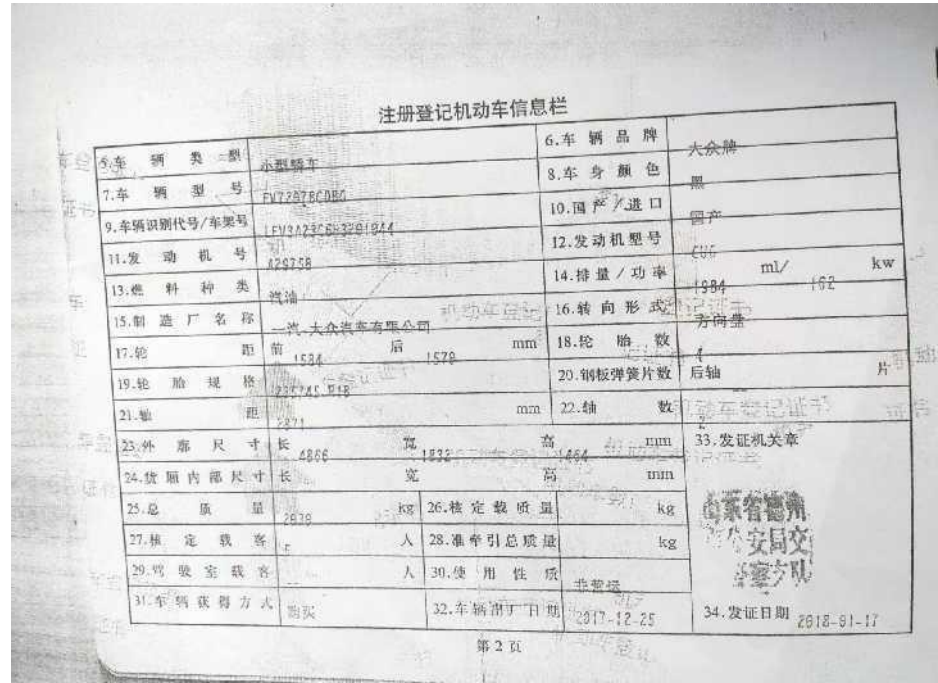 注册登记机动车信息栏
5.车辆类型 小型轿车 6.车辆品牌 大众牌
7.车辆型号 8.车身颜色 黑
9.车辆识别代号/车架号 10.国产/进口 国产
11.发动机号 12.发动机型号
13.燃料种类 汽油 14.排量/功率 1984 ml/ 162 kw
15.制造厂名称 一汽-大众汽车有限公司 16.转向形式 方向盘
17.轮距 前 1584 后 1578 mm 18.轮胎数 4
19.轮胎规格 235/45 R18 20.钢板弹簧片数 后轴 片
21.轴距 2871 mm 22.轴数 2
23.外廓尺寸 长 4866 宽 1832 高 1464 mm 33.发证机关章
24.货厢内部尺寸 长 宽 高 mm
25.总质量 kg 26.核定载质量 kg 山东省德州
27.核定载客 5 人 28.准牵引总质量 kg 公安局交
29.驾驶室载客 人 30.使用性质 非营运 警支队
31.车辆获得方式 购买 32.车辆出厂日期 2017-12-25 34.发证日期 2018-01-17
第2页